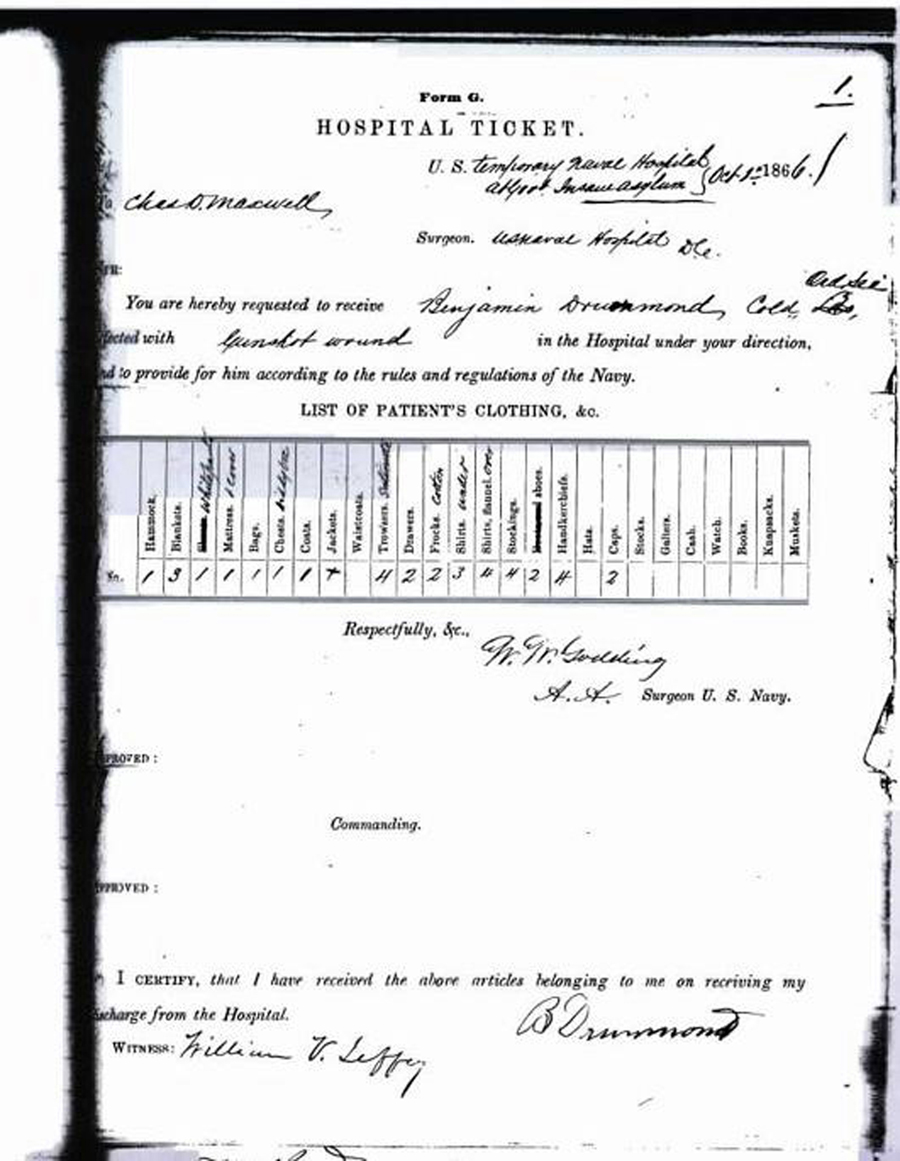 1.
Form G.
HOSPITAL TICKET.
U. S. temporary Naval Hospital
at Govt. Insane asylum } Oct 1st 1866.
Chas D. Maxwell,
Surgeon. US Naval Hospital D.C.
SIR:
Ord. Sea
You are hereby requested to receive Benjamin Drummond, Cold,
fected with Gunshot wound in the Hospital under your direction,
nd to provide for him according to the rules and regulations of the Navy.
LIST OF PATIENT'S CLOTHING, &c.
Hammock. Blankets. Mattress. 1 cover Bags. Chests. Coats. Jackets. Waistcoats. Trowsers. Drawers. Frocks. cotton Shirts. under Shirts, flannel. over Stockings. shoes. Handkerchiefs. Hats. Caps. Stocks. Gaiters. Cash. Watch. Books. Knapsacks. Muskets.
No. 1 3 1 1 1 1 1 4 2 2 3 4 4 2 4 2
Respectfully, &c.,
W. W. Godding
A. A. Surgeon U. S. Navy.
PROVED:
Commanding.
PPROVED:
I CERTIFY, that I have received the above articles belonging to me on receiving my
scharge from the Hospital.
B Drummond
WITNESS: William V. Leffey